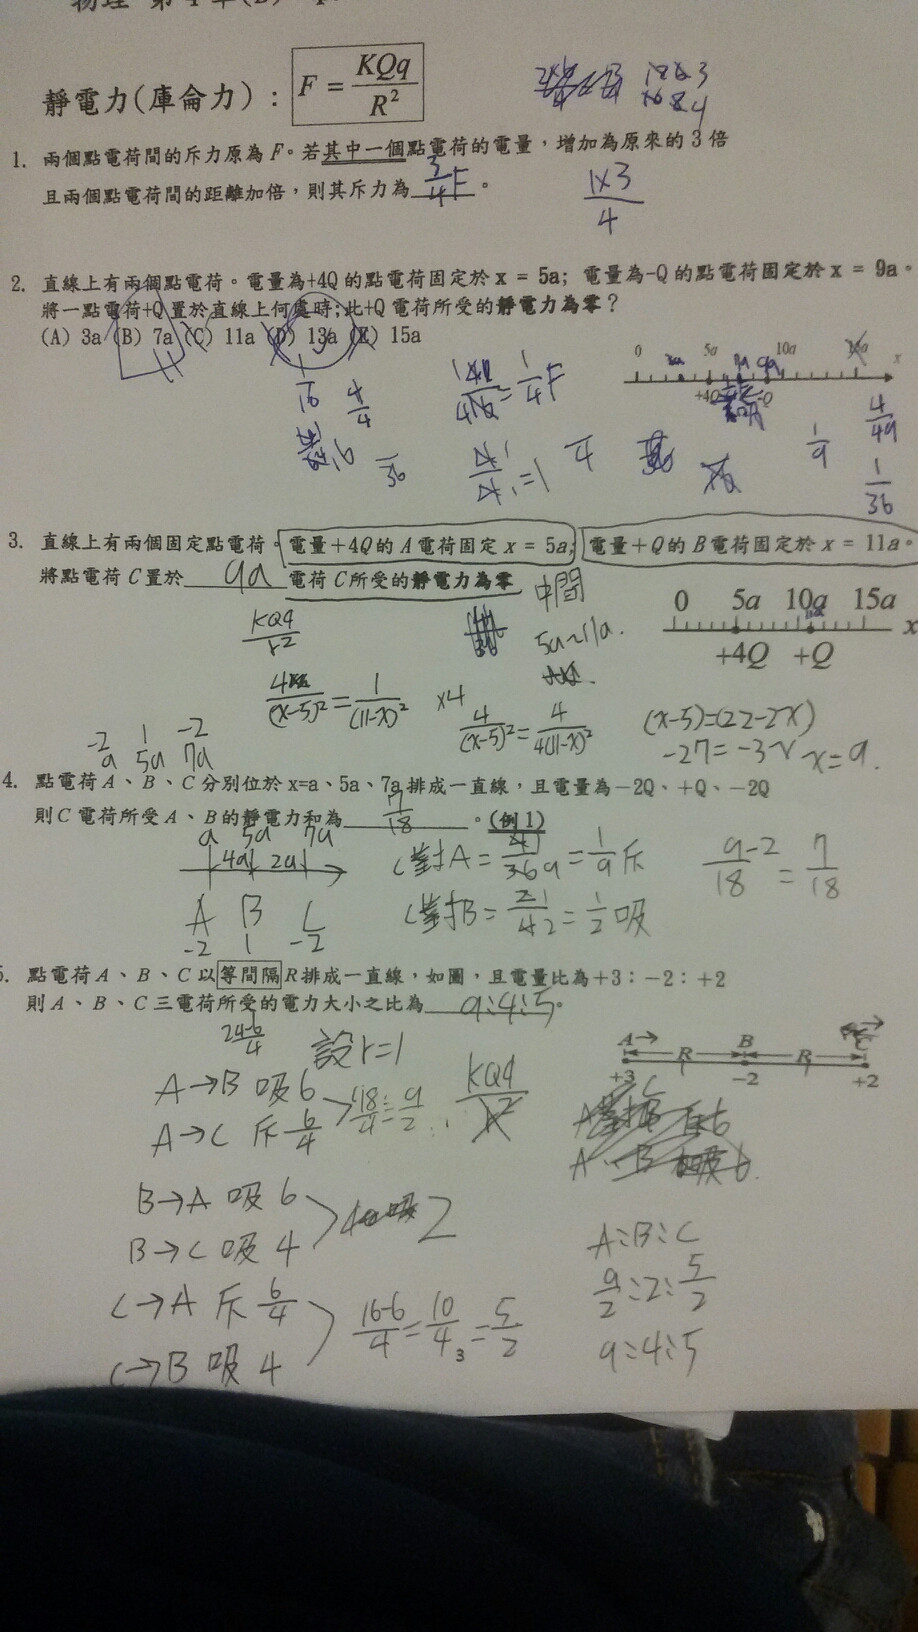 物理 第4章
靜電力(庫侖力)： F = KQq / R²
1. 兩個點電荷間的斥力原為 F。若其中一個點電荷的電量，增加為原來的 3 倍
且兩個點電荷間的距離加倍，則其斥力為 3/4 F 。
1x3
4
2. 直線上有兩個點電荷。電量為+4Q 的點電荷固定於 x = 5a; 電量為-Q 的點電荷固定於 x = 9a。
將一點電荷+Q 置於直線上何處時;此+Q 電荷所受的靜電力為零？
(A) 3a (B) 7a (C) 11a (D) 13a (E) 15a
0 5a 10a x
+4Q -Q
= 1/4 F
1/16 4/4
=1
1/9 4/49
1/36
3. 直線上有兩個固定點電荷。電量+4Q 的 A 電荷固定 x = 5a; 電量+Q 的 B 電荷固定於 x = 11a。
將點電荷 C 置於 9a 電荷 C 所受的靜電力為零
中間
5a~11a.
0 5a 10a 15a x
+4Q +Q
KQq
r²
4/(x-5)² = 1/(11-x)² x4
4/(x-5)² = 4/4(11-x)²
(x-5)=(22-2x)
-27=-3x x=9.
-2 1 -2
a 5a 7a
4. 點電荷 A、B、C 分別位於 x=a、5a、7a 排成一直線，且電量為-2Q、+Q、-2Q
則 C 電荷所受 A、B 的靜電力和為 7/18 。(例 1)
a 5a 7a
4a 2a
A B C
-2 1 -2
C對A = 4/36 9 = 1/9 斥
C對B = 2 1/4 2 = 1/2 吸
9-2/18 = 7/18
5. 點電荷 A、B、C 以等間隔 R 排成一直線，如圖，且電量比為+3：-2：+2
則 A、B、C 三電荷所受的電力大小之比為 9:4:5。
A B C
R R
+3 -2 +2
24-6
4
設r=1
A→B 吸 6
A→C 斥 6/4
18/4 = 9/2
KQq
B→A 吸 6
B→C 吸 4
2
C→A 斥 6/4
C→B 吸 4
16-6/4 = 10/4 = 5/2
A:B:C
9/2:2:5/2
9:4:5
3